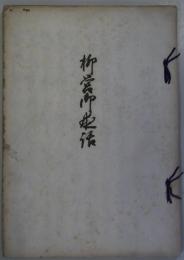 柳営御夜話